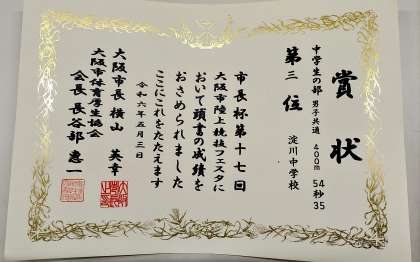 賞状
中学生の部 男子共通 400m 54秒35
第三位 淀川中学校
市長杯第十七回
大阪市陸上競技フェスタに
おいて頭書の成績を
おさめられました
ここにこれをたたえます
令和六年五月三日
大阪市長 横山英幸
大阪市体育厚生協会
会長 長谷部惠一